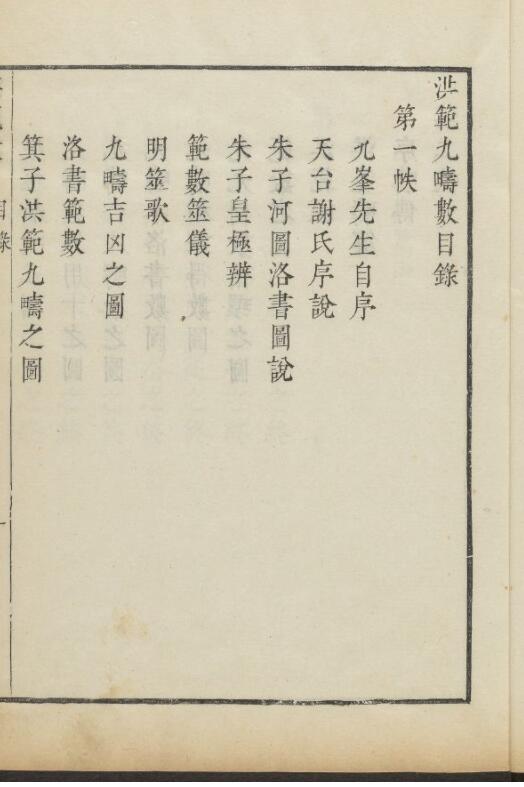 洪範九疇數目錄
第一帙
九峯先生自序
天台謝氏序說
朱子河圖洛書圖說
朱子皇極辨
範數筮儀
明筮歌
九疇吉凶之圖
洛書範數
箕子洪範九疇之圖